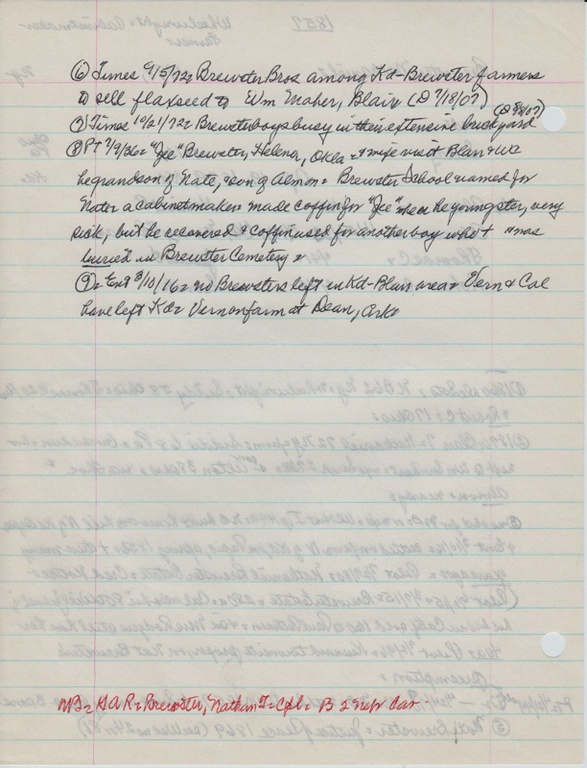 ⑥ Times 9/5/72 = Brewster Bros among Kd-Brewster farmers
to sell flaxseed to Wm Maher, Blair (D 7/18/07)
⑦ Times 10/21/72 = Brewster boys busy in their extensive brick yard (D 8/8/07)
⑧ PT 7/9/36 = "Jee" Brewster, Helena, Okla + wife visit Blair + Wa
he grandson of Nate, son of Almon = Brewster School named for
Nate = a cabinetmaker made coffin for "Jee" when he youngster, very
sick, but he recovered + coffin used for another boy who + was
buried in Brewster Cemetery =
⑨ = Ent 3/10/16 = no Brewsters left in Kd-Blair area = Vern + Cal
have left Kd = Vern on farm at Dean, Ark =
NB = GAR = Brewster, Nathan T = Cpl = B 2 Nebr Cav.